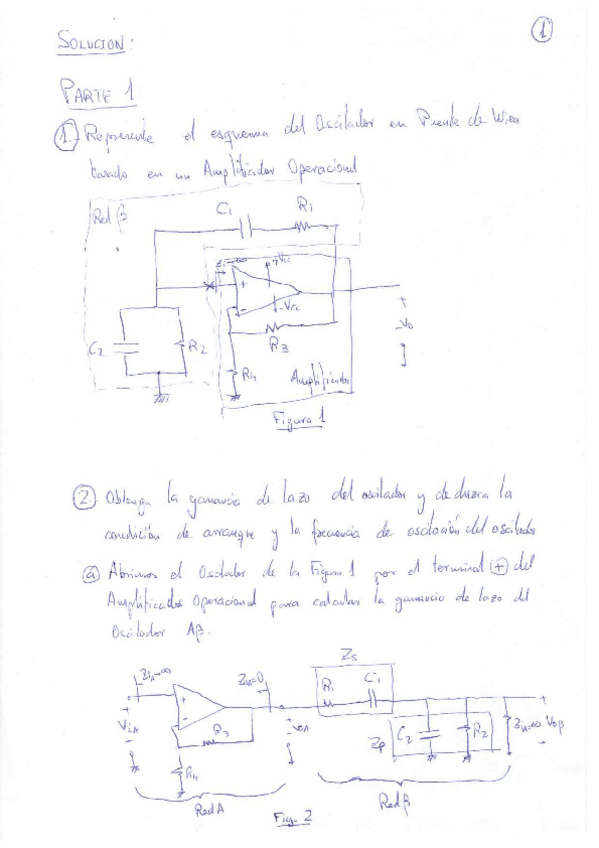 SOLUCION:
1
PARTE 1
1. Represente el esquema del Oscilador en Puente de Wien
basado en un Amplificador Operacional
Red β
C1
R1
Zi→∞
+Vcc
+
-
-Vcc
+
Vo
-
C2
R2
R3
R4
Amplificador
Figura 1
2. Obtenga la ganancia de lazo del oscilador y deduzca la
condición de arranque y la frecuencia de oscilación del oscilador
a) Abrimos el Oscilador de la Figura 1 por el terminal (+) del
Amplificador Operacional para calcular la ganancia de lazo del
Oscilador Aβ.
Zs
ZiA→∞
R1
C1
+
+
-
ViA
-
R3
R4
+
VoA
-
Zp
C2
R2
ZiA=∞
+
Voβ
-
Red A
Red β
Fig. 2